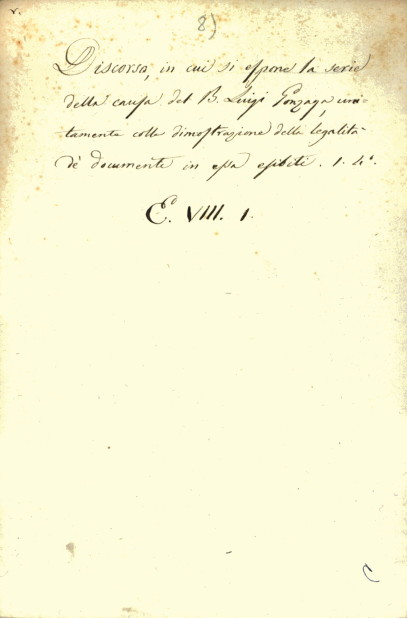 8)
Discorso, in cui si espone la serie
della causa del B. Luigi Gonzaga uni-
tamente colla dimostrazione della legalità
de' documenti in essa esibiti. 1. 4°.
E. VIII. 1.
C